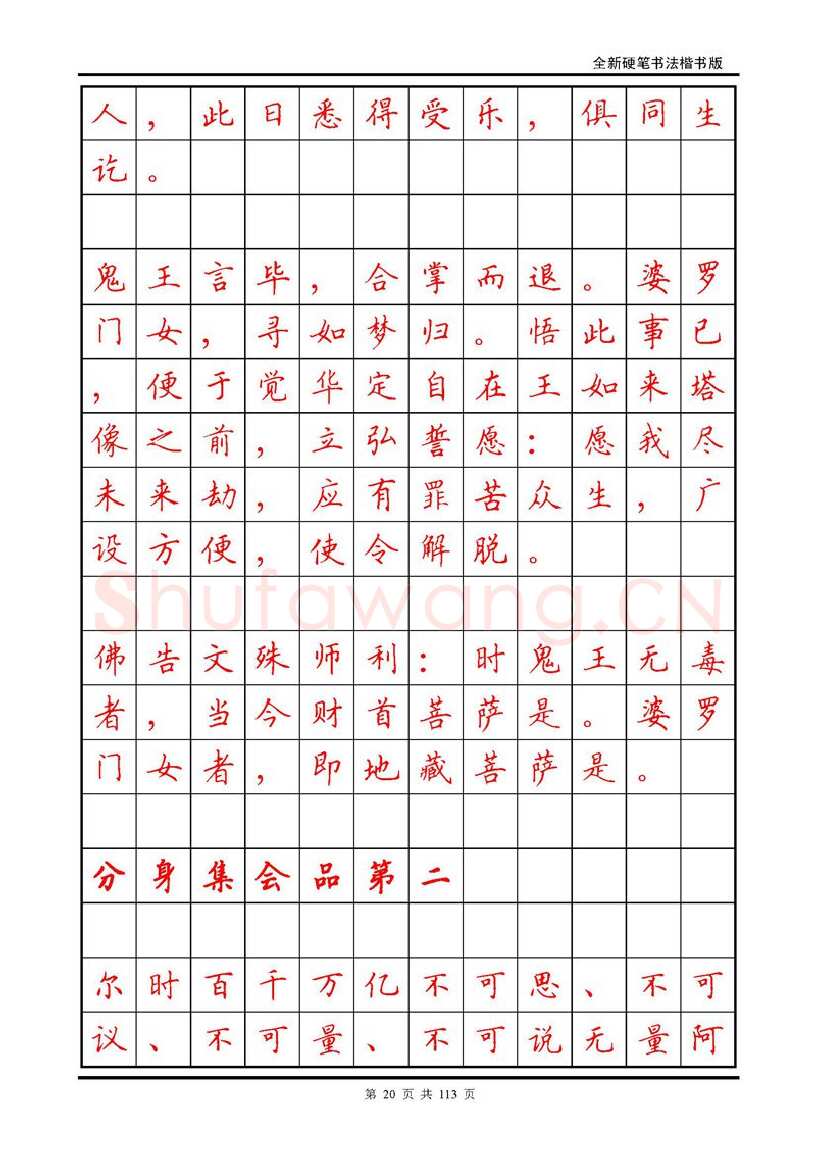 全新硬笔书法楷书版
人，此日悉得受乐，俱同生
讫。
鬼王言毕，合掌而退。婆罗
门女，寻如梦归。悟此事已
，便于觉华定自在王如来塔
像之前，立弘誓愿：愿我尽
未来劫，应有罪苦众生，广
设方便，使令解脱。
Shufawang.CN
佛告文殊师利：时鬼王无毒
者，当今财首菩萨是。婆罗
门女者，即地藏菩萨是。
分身集会品第二
尔时百千万亿不可思、不可
议、不可量、不可说无量阿
第 20 页 共 113 页